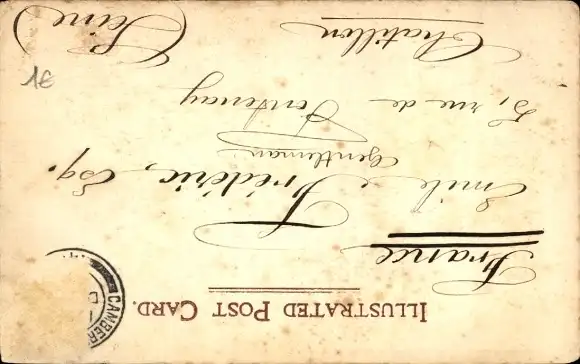 ILLUSTRATED POST CARD.
CAMBER
France
Emile Frédéric, Esq.
Gentleman
5, rue de Fontenay
Chatillon
(Seine)
1€